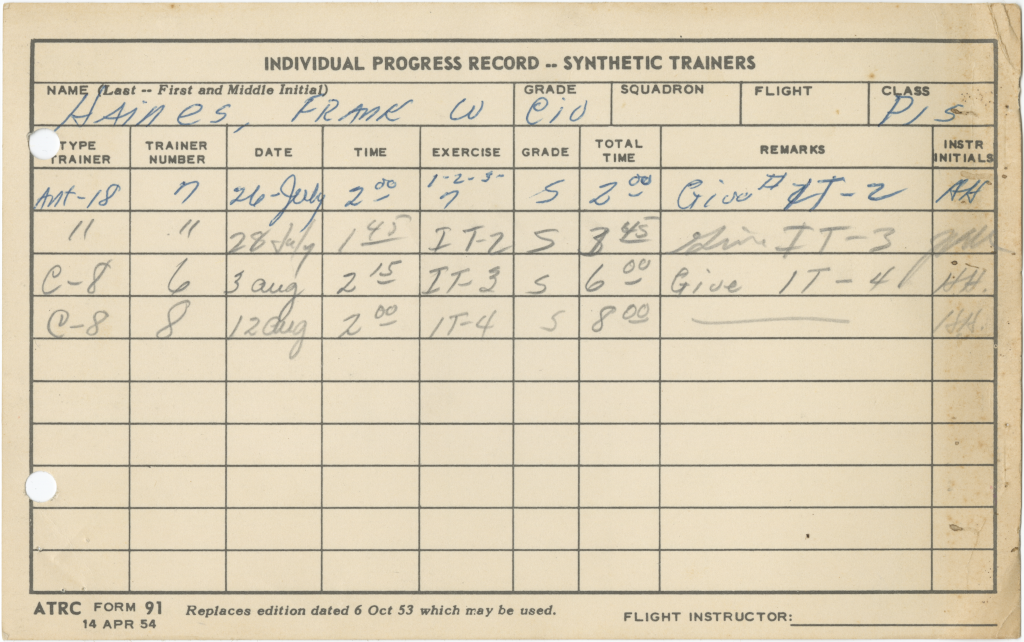 INDIVIDUAL PROGRESS RECORD -- SYNTHETIC TRAINERS
NAME (Last -- First and Middle Initial) GRADE SQUADRON FLIGHT CLASS
HAINES, FRANK W Civ PIS
TYPE TRAINER TRAINER NUMBER DATE TIME EXERCISE GRADE TOTAL TIME REMARKS INSTR INITIALS
ANT-18 7 26-July 2 00 1-2-3-7 S 2 00 Give # IT-2 HH
" " 28 July 1 45 IT-2 S 3 45 Give IT-3
C-8 6 3 aug 2 15 IT-3 S 6 00 Give IT-4 HH.
C-8 8 12 aug 2 00 IT-4 S 8 00 —— HH.
ATRC FORM 91 Replaces edition dated 6 Oct 53 which may be used.
14 APR 54
FLIGHT INSTRUCTOR: